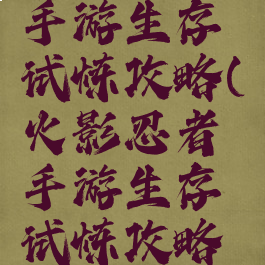 手游生存
试炼攻略(
火影忍者
手游生存
试炼攻略